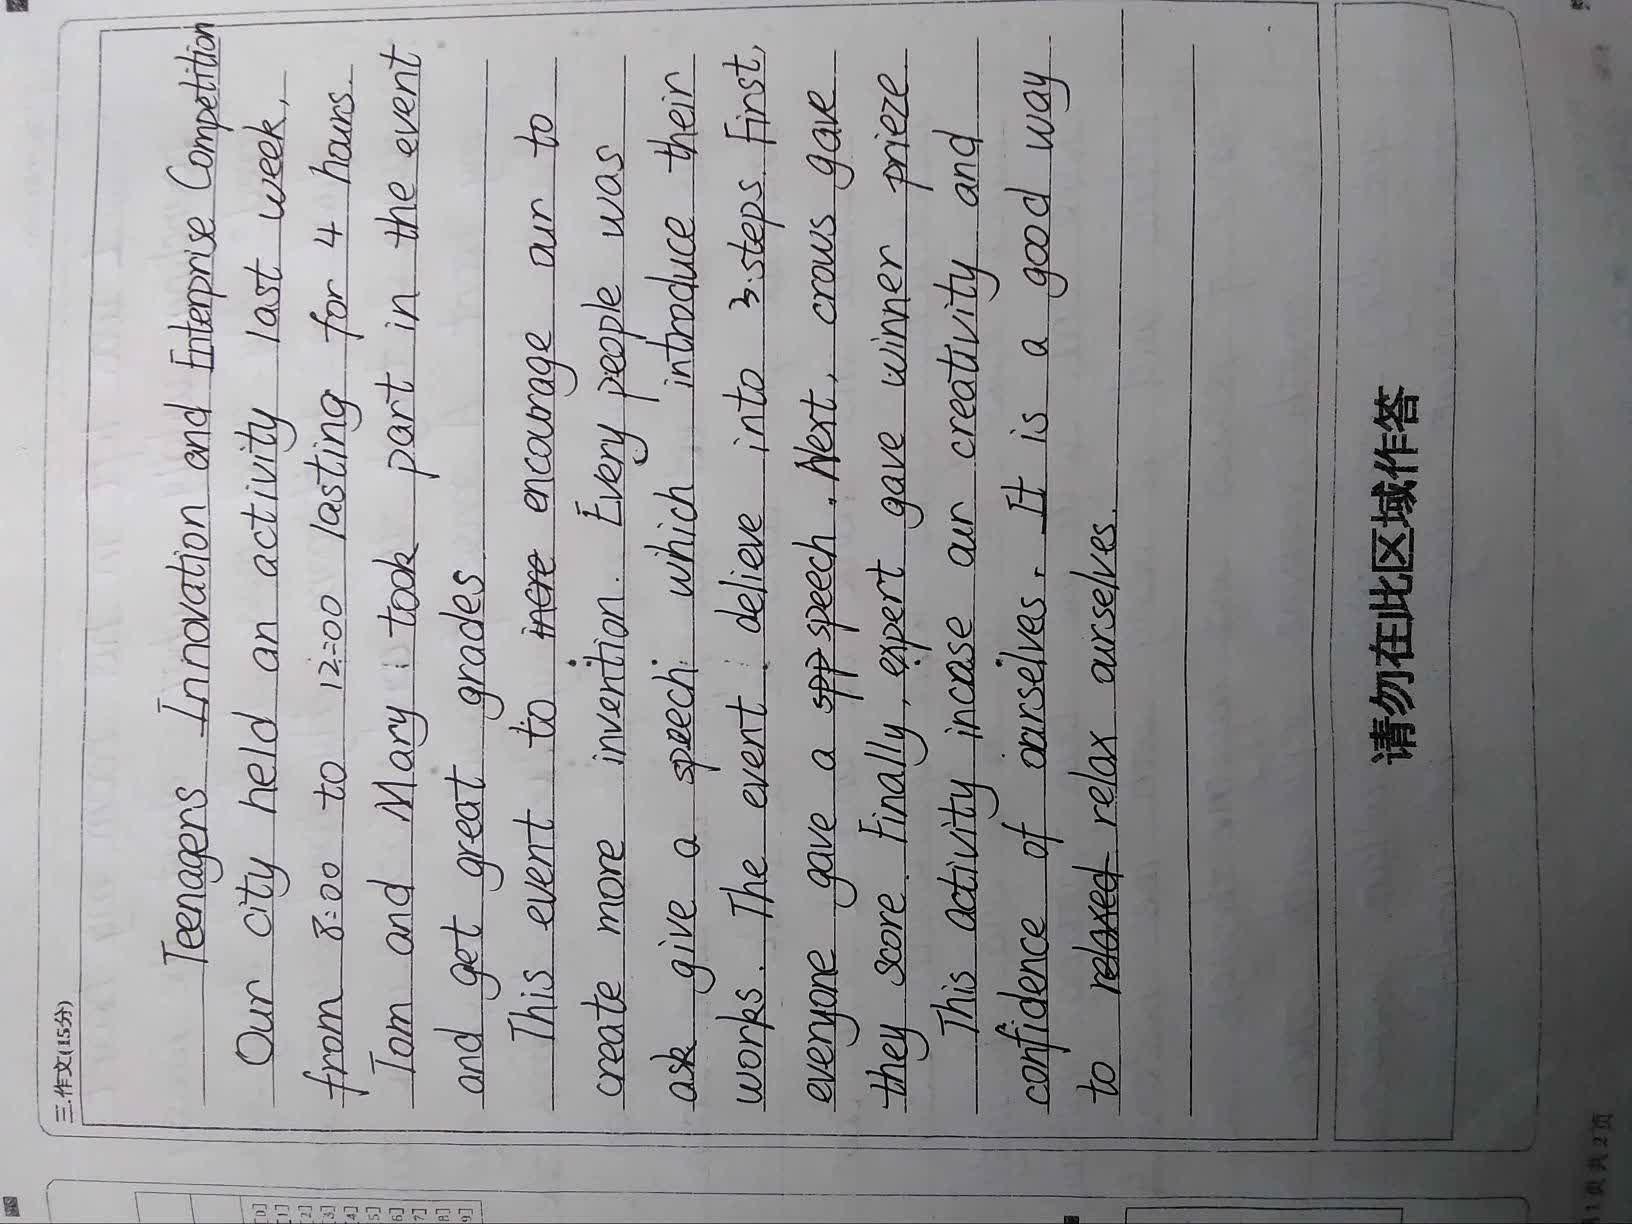 三.作文(15分)
Teenagers Innovation and Enterprise Competition
Our city held an activity last week,
from 8:00 to 12:00 lasting for 4 hours.
Tom and Mary took part in the event
and get great grades
This event to incre encourage our to
create more invention. Every people was
ask give a speech which introduce their
works. The event delieve into 3 steps. First,
everyone gave a spp speech. Next, crows gave
they score. Finally, expert gave winner prieze
This activity incase our creativity and
confidence of ourselves. It is a good way
to relaxed relax ourselves.
请勿在此区域作答
1页 共2页
[0]
[1]
[2]
[3]
[4]
[5]
[6]
[7]
[8]
[9]